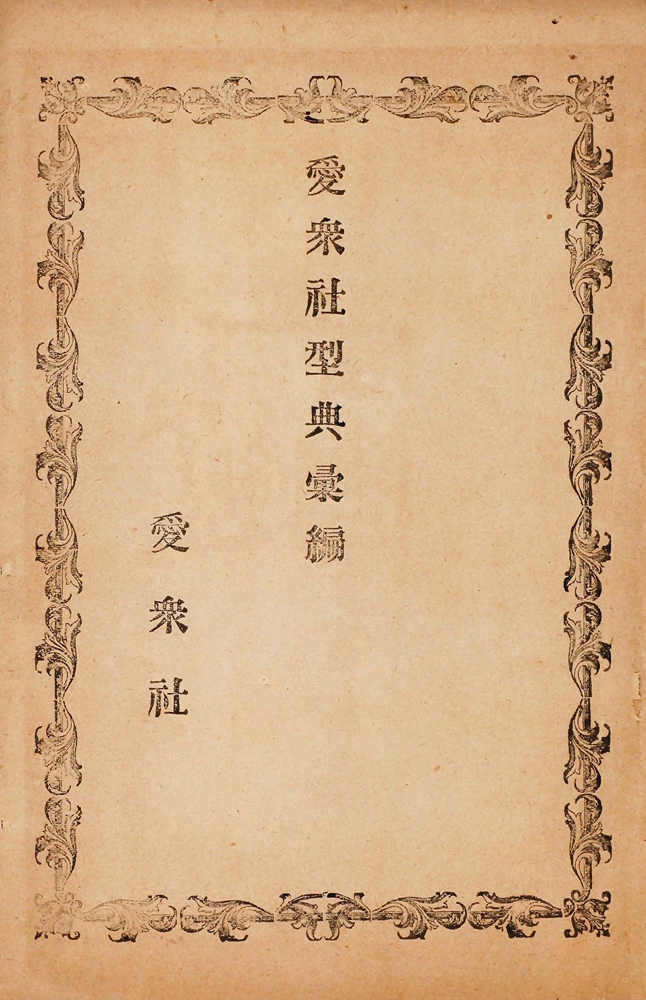 愛衆社型典彙編
愛衆社